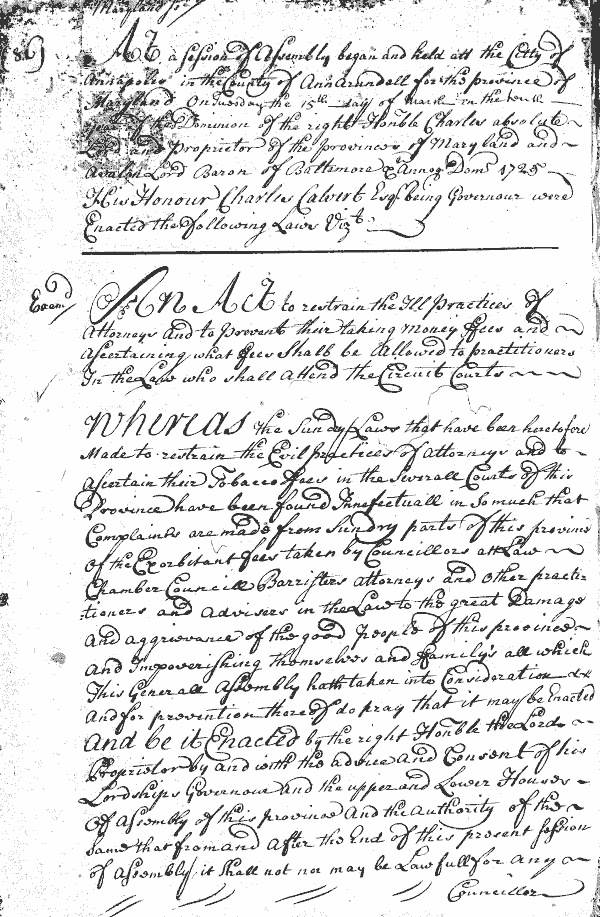 Maryland ss
At a Session of Assembly began and held att the Citty of
Annapolis in the County of Ann Arundell for the province of
Maryland On Tuesday the 15th day of March in the tenth
year of the Dominion of the right Honble Charles absolute
Lord and Proprietor of the provinces of Maryland and
Avalon Lord Baron of Baltemore &c Annoq Domi 1725
His Honour Charles Calvert Esqr being Governour were
Enacted the following Laws Vizt.
Exam'd
An Act to restrain the Ill Practices of
Attorneys and to prevent their taking money ffees and
Ascertaining what ffees Shall be Allowed to practitioners
In the Law who shall attend the Circuit Courts
Whereas the Sundry Laws that have been heretofore
Made to restrain the Evil practices of attorneys and to
Ascertain their Tobacco ffees in the Severall Courts of this
Province have been found Inneffectuall in So much that
Complaints are made from Sundry parts of this province
Of the Exorbitant ffees taken by Councillors att Law
Chamber Councill Barristers attorneys and other practi-
tioners and advisers in the Law to the great Damage
And aggrievance of the good people of this province
And Impoverishing themselves and ffamily's all which
This Generall Assembly hath taken into Consideration &
And for prevention thereof do pray that it may be Enacted
And be it Enacted by the right Honble the Lord
Proprietor by and with the advice and Consent of his
Lordships Governour and the upper and Lower Houses
Of Assembly of this province And the Authority of the
same that from and after the End of this present Session
of Assembly it shall not nor may be Lawfull for any
Councillor